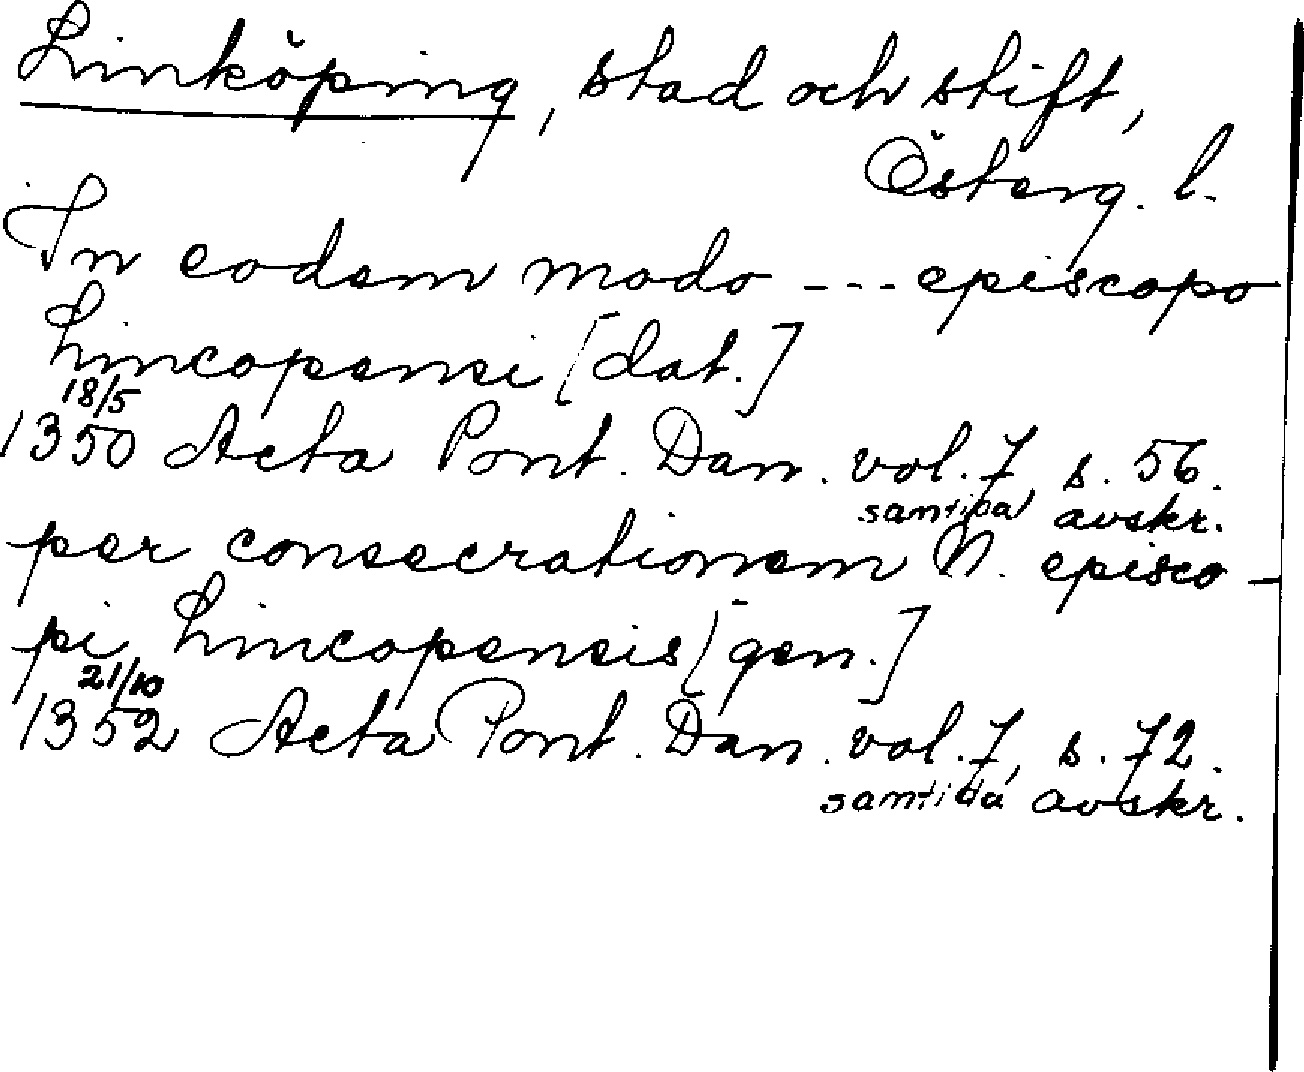 Linköping, stad och stift,
Österg. l.
In eodem modo --- episcopo
Lincopensi [dat.]
18/5
1350 Acta Pont. Dan. vol. 7, s. 56.
samtida avskr.
per consecrationem N. episco-
pi Lincopensis [gen.]
21/10
1352 Acta Pont. Dan. vol. 7, s. 72.
samtida avskr.